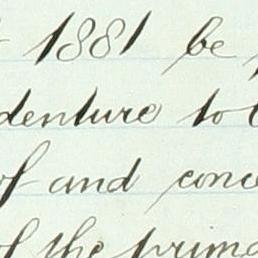 1881 be
denture to
of and conc
of the prima